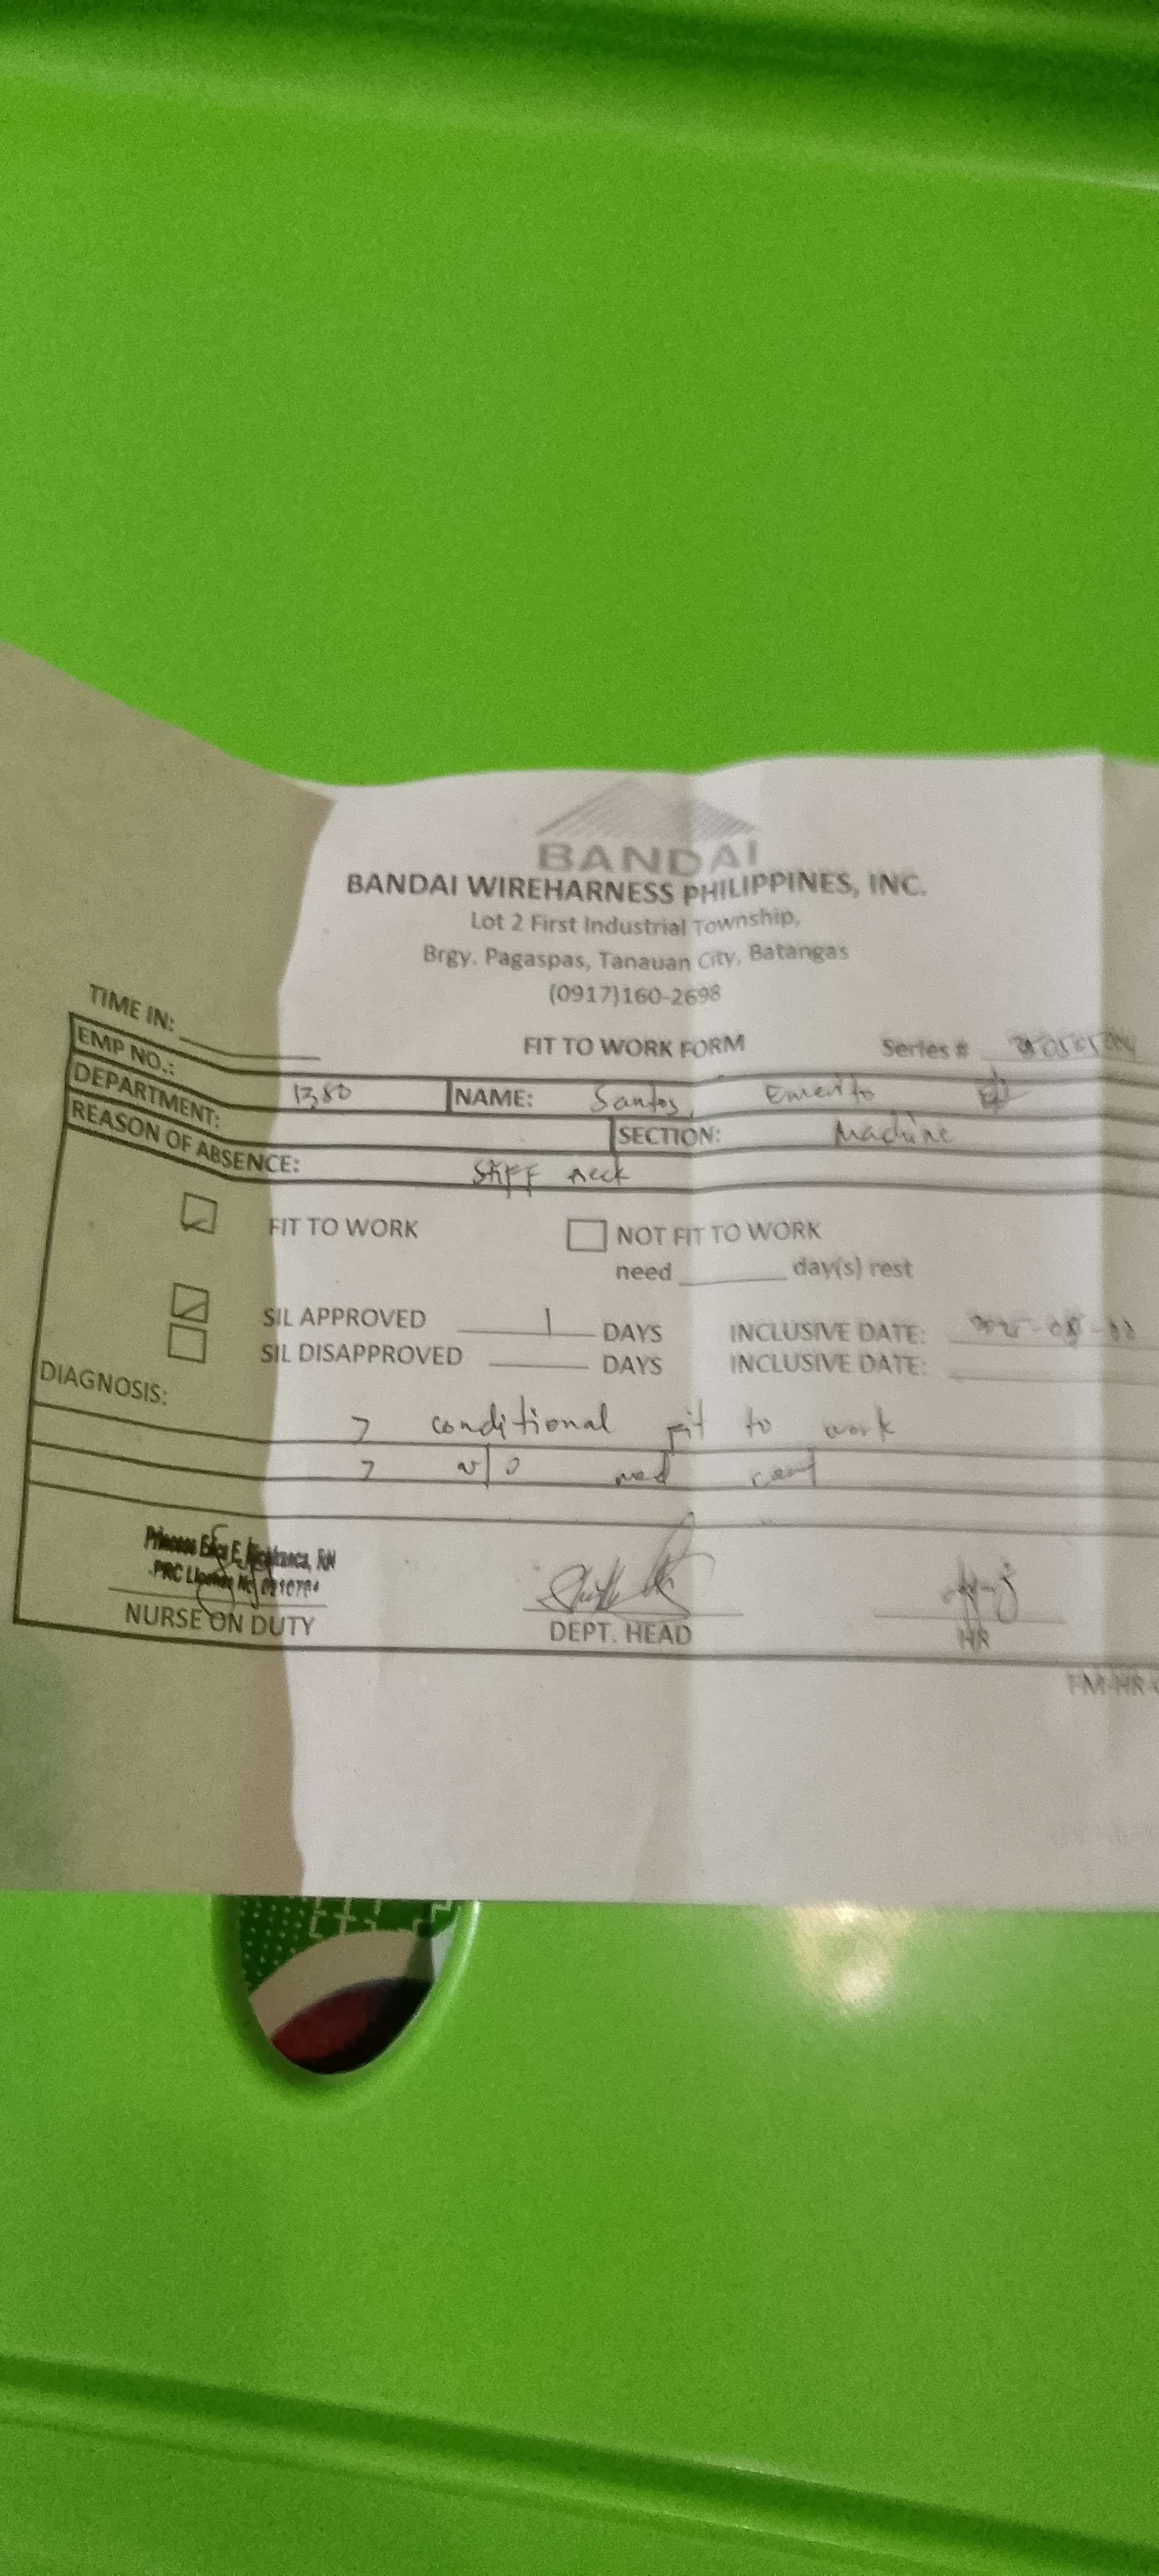 BANDAI
BANDAI WIREHARNESS PHILIPPINES, INC.
Lot 2 First Industrial Township,
Brgy. Pagaspas, Tanauan City, Batangas
(0917)160-2698
TIME IN:
FIT TO WORK FORM Series #
EMP NO.: 1380 NAME: Santos, Emerito
DEPARTMENT: SECTION: Machine
REASON OF ABSENCE: Stiff neck
FIT TO WORK NOT FIT TO WORK
need day(s) rest
SIL APPROVED 1 DAYS INCLUSIVE DATE:
SIL DISAPPROVED DAYS INCLUSIVE DATE:
DIAGNOSIS:
> conditional fit to work
> w/o med cert
Princess E. RN
PRC License No
NURSE ON DUTY DEPT. HEAD HR
FM-HR-